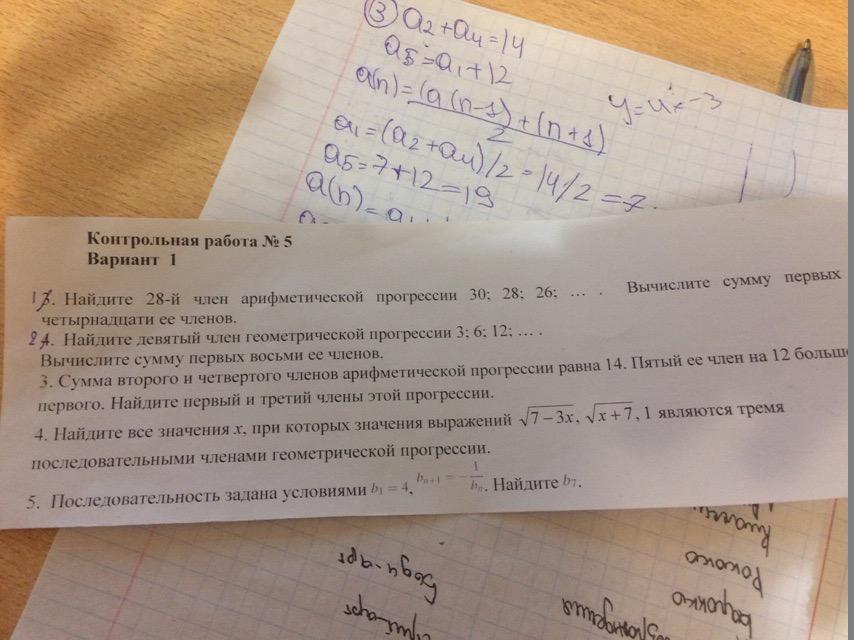 ③ a2 + a4 = 14
a5 = a1 + 12
a(n) = (a(n-1) + (n+1)) / 2
y = 4x - 3
a1 = (a2 + a4)/2 = 14/2 = 7.
a5 = 7 + 12 = 19
a(n) =
Контрольная работа № 5
Вариант 1
1. Найдите 28-й член арифметической прогрессии 30; 28; 26; … . Вычислите сумму первых
четырнадцати ее членов.
2. Найдите девятый член геометрической прогрессии 3; 6; 12; … .
Вычислите сумму первых восьми ее членов.
3. Сумма второго и четвертого членов арифметической прогрессии равна 14. Пятый ее член на 12 больше
первого. Найдите первый и третий члены этой прогрессии.
4. Найдите все значения x, при которых значения выражений √(7 − 3x), √(x + 7), 1 являются тремя
последовательными членами геометрической прогрессии.
5. Последовательность задана условиями b₁ = 4, bₙ₊₁ = −1/bₙ. Найдите b₇.
Рококо
Барокко
Боди-арт